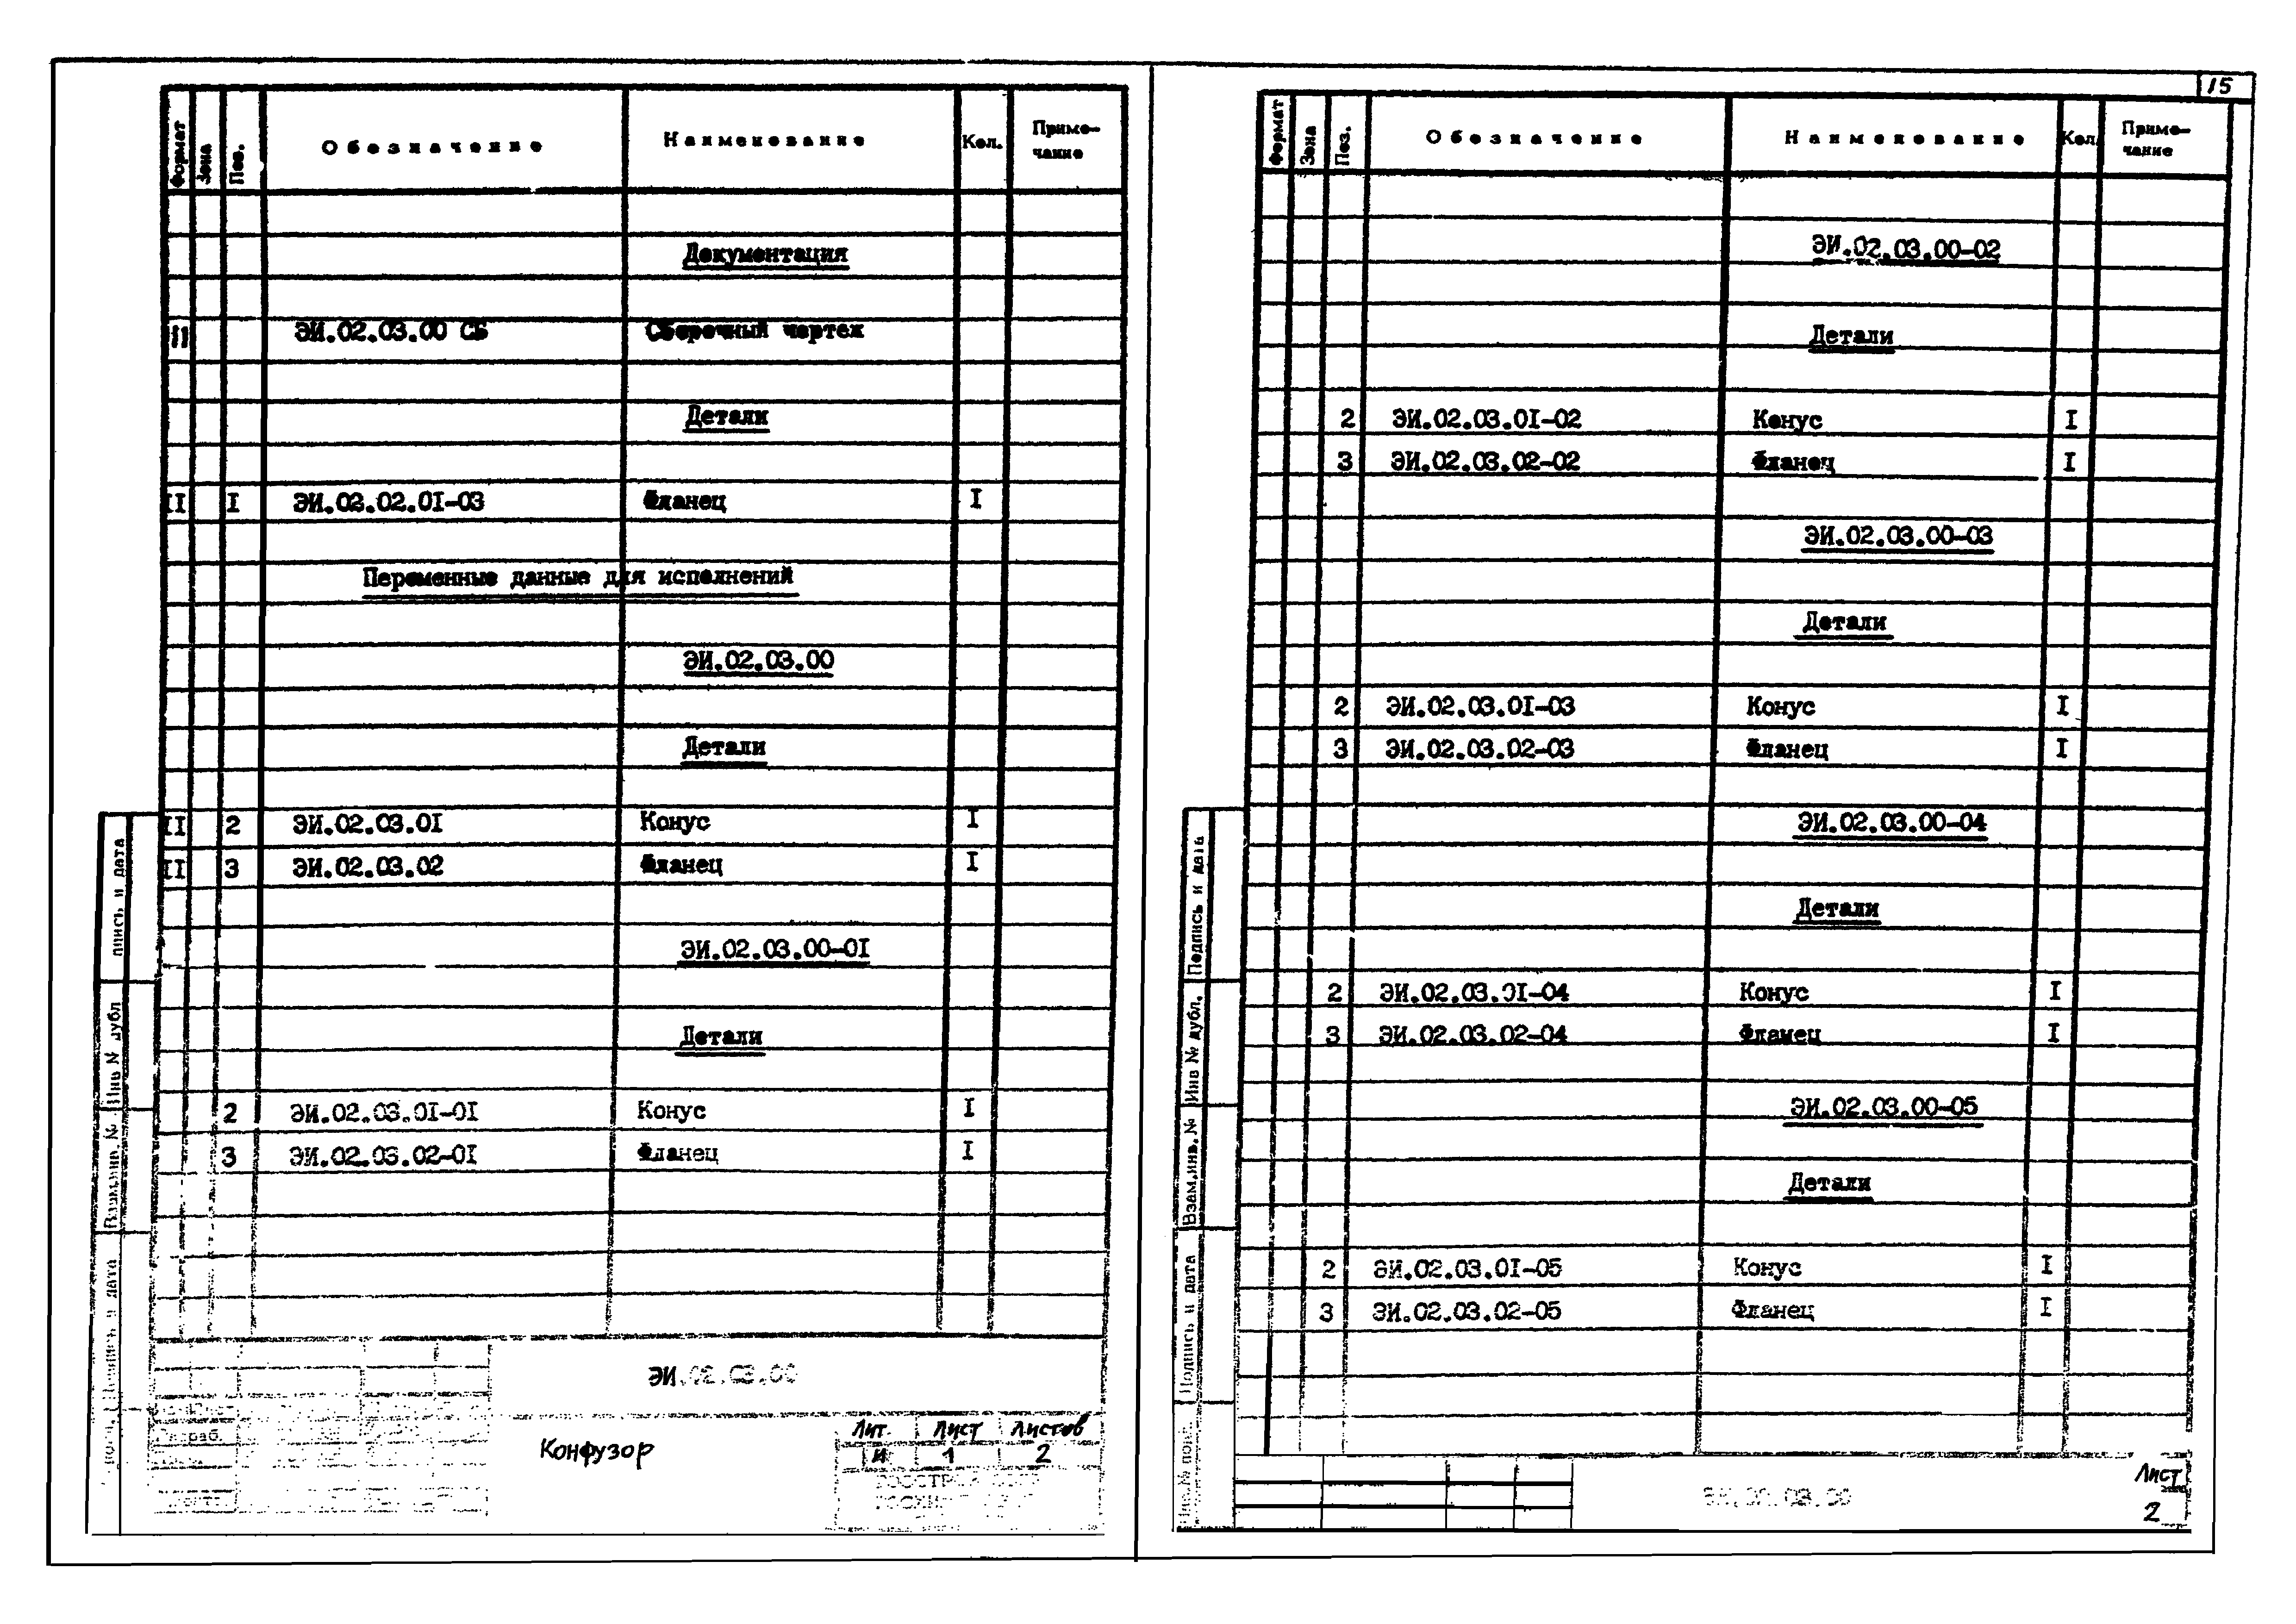 15
Формат Зона Поз. Обозначение Наименование Кол. Приме-
чание
Документация
11 ЭИ.02.03.00 СБ Сборочный чертеж
Детали
II I ЭИ.02.02.0I-03 Фланец I
Переменные данные для исполнений
ЭИ.02.03.00
Детали
II 2 ЭИ.02.03.0I Конус I
II 3 ЭИ.02.03.02 Фланец I
ЭИ.02.03.00-0I
Детали
2 ЭИ.02.03.0I-0I Конус I
3 ЭИ.02.03.02-0I Фланец I
ЭИ.02.03.00
Разраб.
Конфузор
Лит Лист Листов
И 1 2
дата
Инв № дубл
Взам.инв. №
Подпись и дата
Формат Зона Поз. Обозначение Наименование Кол. Приме-
чание
ЭИ.02.03.00-02
Детали
2 ЭИ.02.03.0I-02 Конус I
3 ЭИ.02.03.02-02 Фланец I
ЭИ.02.03.00-03
Детали
2 ЭИ.02.03.0I-03 Конус I
3 ЭИ.02.03.02-03 Фланец I
ЭИ.02.03.00-04
Детали
2 ЭИ.02.03.0I-04 Конус I
3 ЭИ.02.03.02-04 Фланец I
ЭИ.02.03.00-05
Детали
2 ЭИ.02.03.0I-05 Конус I
3 ЭИ.02.03.02-05 Фланец I
Подпись и дата
Инв № дубл.
Взам.инв. №
Подпись и дата
ЭИ.02.03.00
Лист
2